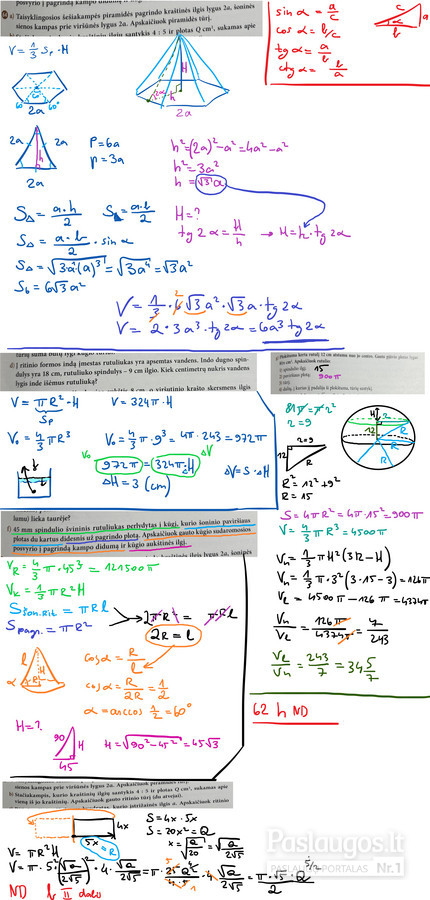 posvyrio į pagrindą kampo didumą ir
a) Taisyklingosios šešiakampės piramidės pagrindo kraštinės ilgis lygus 2a, šoninės
sienos kampas prie viršūnės lygus 2α. Apskaičiuok piramidės tūrį.
santykis 4 : 5 ir plotas Q cm², sukamas apie
sin α = a/c
cos α = b/c
tg α = a/b
ctg α = b/a
c
a
α
b
V = 1/3 Sp · H
60°
60°
2a
H
h
2α
2a
2a
2a
h
2a
P = 6a
p = 3a
h² = (2a)² - a² = 4a² - a²
h² = 3a²
h = √3 a
S△ = a·h/2
S = a·b/2
S△ = a·b/2 · sin α
S△ = √3a(a)³ = √3a⁴ = √3a²
S6 = 6√3a²
H = ?
tg 2α = H/h → H = h · tg 2α
V = 1/3 · 6√3a² · √3a · tg 2α
V = 2 · 3a³ · tg 2α = 6a³ tg 2α
d) Į ritinio formos indą įmestas rutuliukas yra apsemtas vandens. Indo dugno spin-
dulys yra 18 cm, rutuliuko spindulys – 9 cm ilgio. Kiek centimetrų nukris vandens
lygis inde išėmus rutuliuką?
V = πR² · H
Sp
V = 324π · H
Vo = 4/3 πR³
Vo = 4/3 π · 9³ = 4π · 243 = 972π
Vo
972π = 324π · H
ΔV
ΔH = 3 (cm)
ΔV = S · ΔH
15
900π
81π = π r²
r = 9
H
12
R
R
r=9
12
R
R² = 12² + 9²
R = 15
S = 4πR² = 4π · 15² = 900π
V = 4/3 πR³ = 4500π
Vn = 1/3 πH²(3R - H)
Vn = 1/3 π · 3²(3 · 15 - 3) = 126π
Vl = 4500π - 126π = 4374π
Vn/Vl = 126π/4374π = 7/243
Vl/Vn = 243/7 = 34 5/7
62 h ND
lumu) lieka taurėje?
f) 45 mm spindulio švininis rutuliukas perlydytas į kūgį, kurio šoninio paviršiaus
plotas du kartus didesnis už pagrindo plotą. Apskaičiuok gauto kūgio sudaromosios
posvyrio į pagrindą kampo didumą ir kūgio aukštinės ilgį.
VR = 4/3 π · 45³ = 121500π
Vk = 1/3 πR²H
Sšon.kūg = πRl
Spagr. = πR²
2πR² = πRl
2R = l
l
H
α
R
cos α = R/l
cos α = R/2R = 1/2
α = arccos 1/2 = 60°
H = ?
90
H
45
H = √90² - 45² = 45√3
sienos kampas prie viršūnės lygus 2α. Apskaičiuok piramidės tūrį.
b) Stačiakampis, kurio kraštinių ilgių santykis 4 : 5 ir plotas Q cm², sukamas apie
vieną iš jo kraštinių. Apskaičiuok gauto ritinio tūrį (du atvejai).
4x
5x = R
S = 4x · 5x
S = 20x² = Q
x = √Q/20 = √Q/2√5
V = πR²H
ND b II dalis
Paslaugos.lt
PASLAUGŲ PORTALAS Nr.1